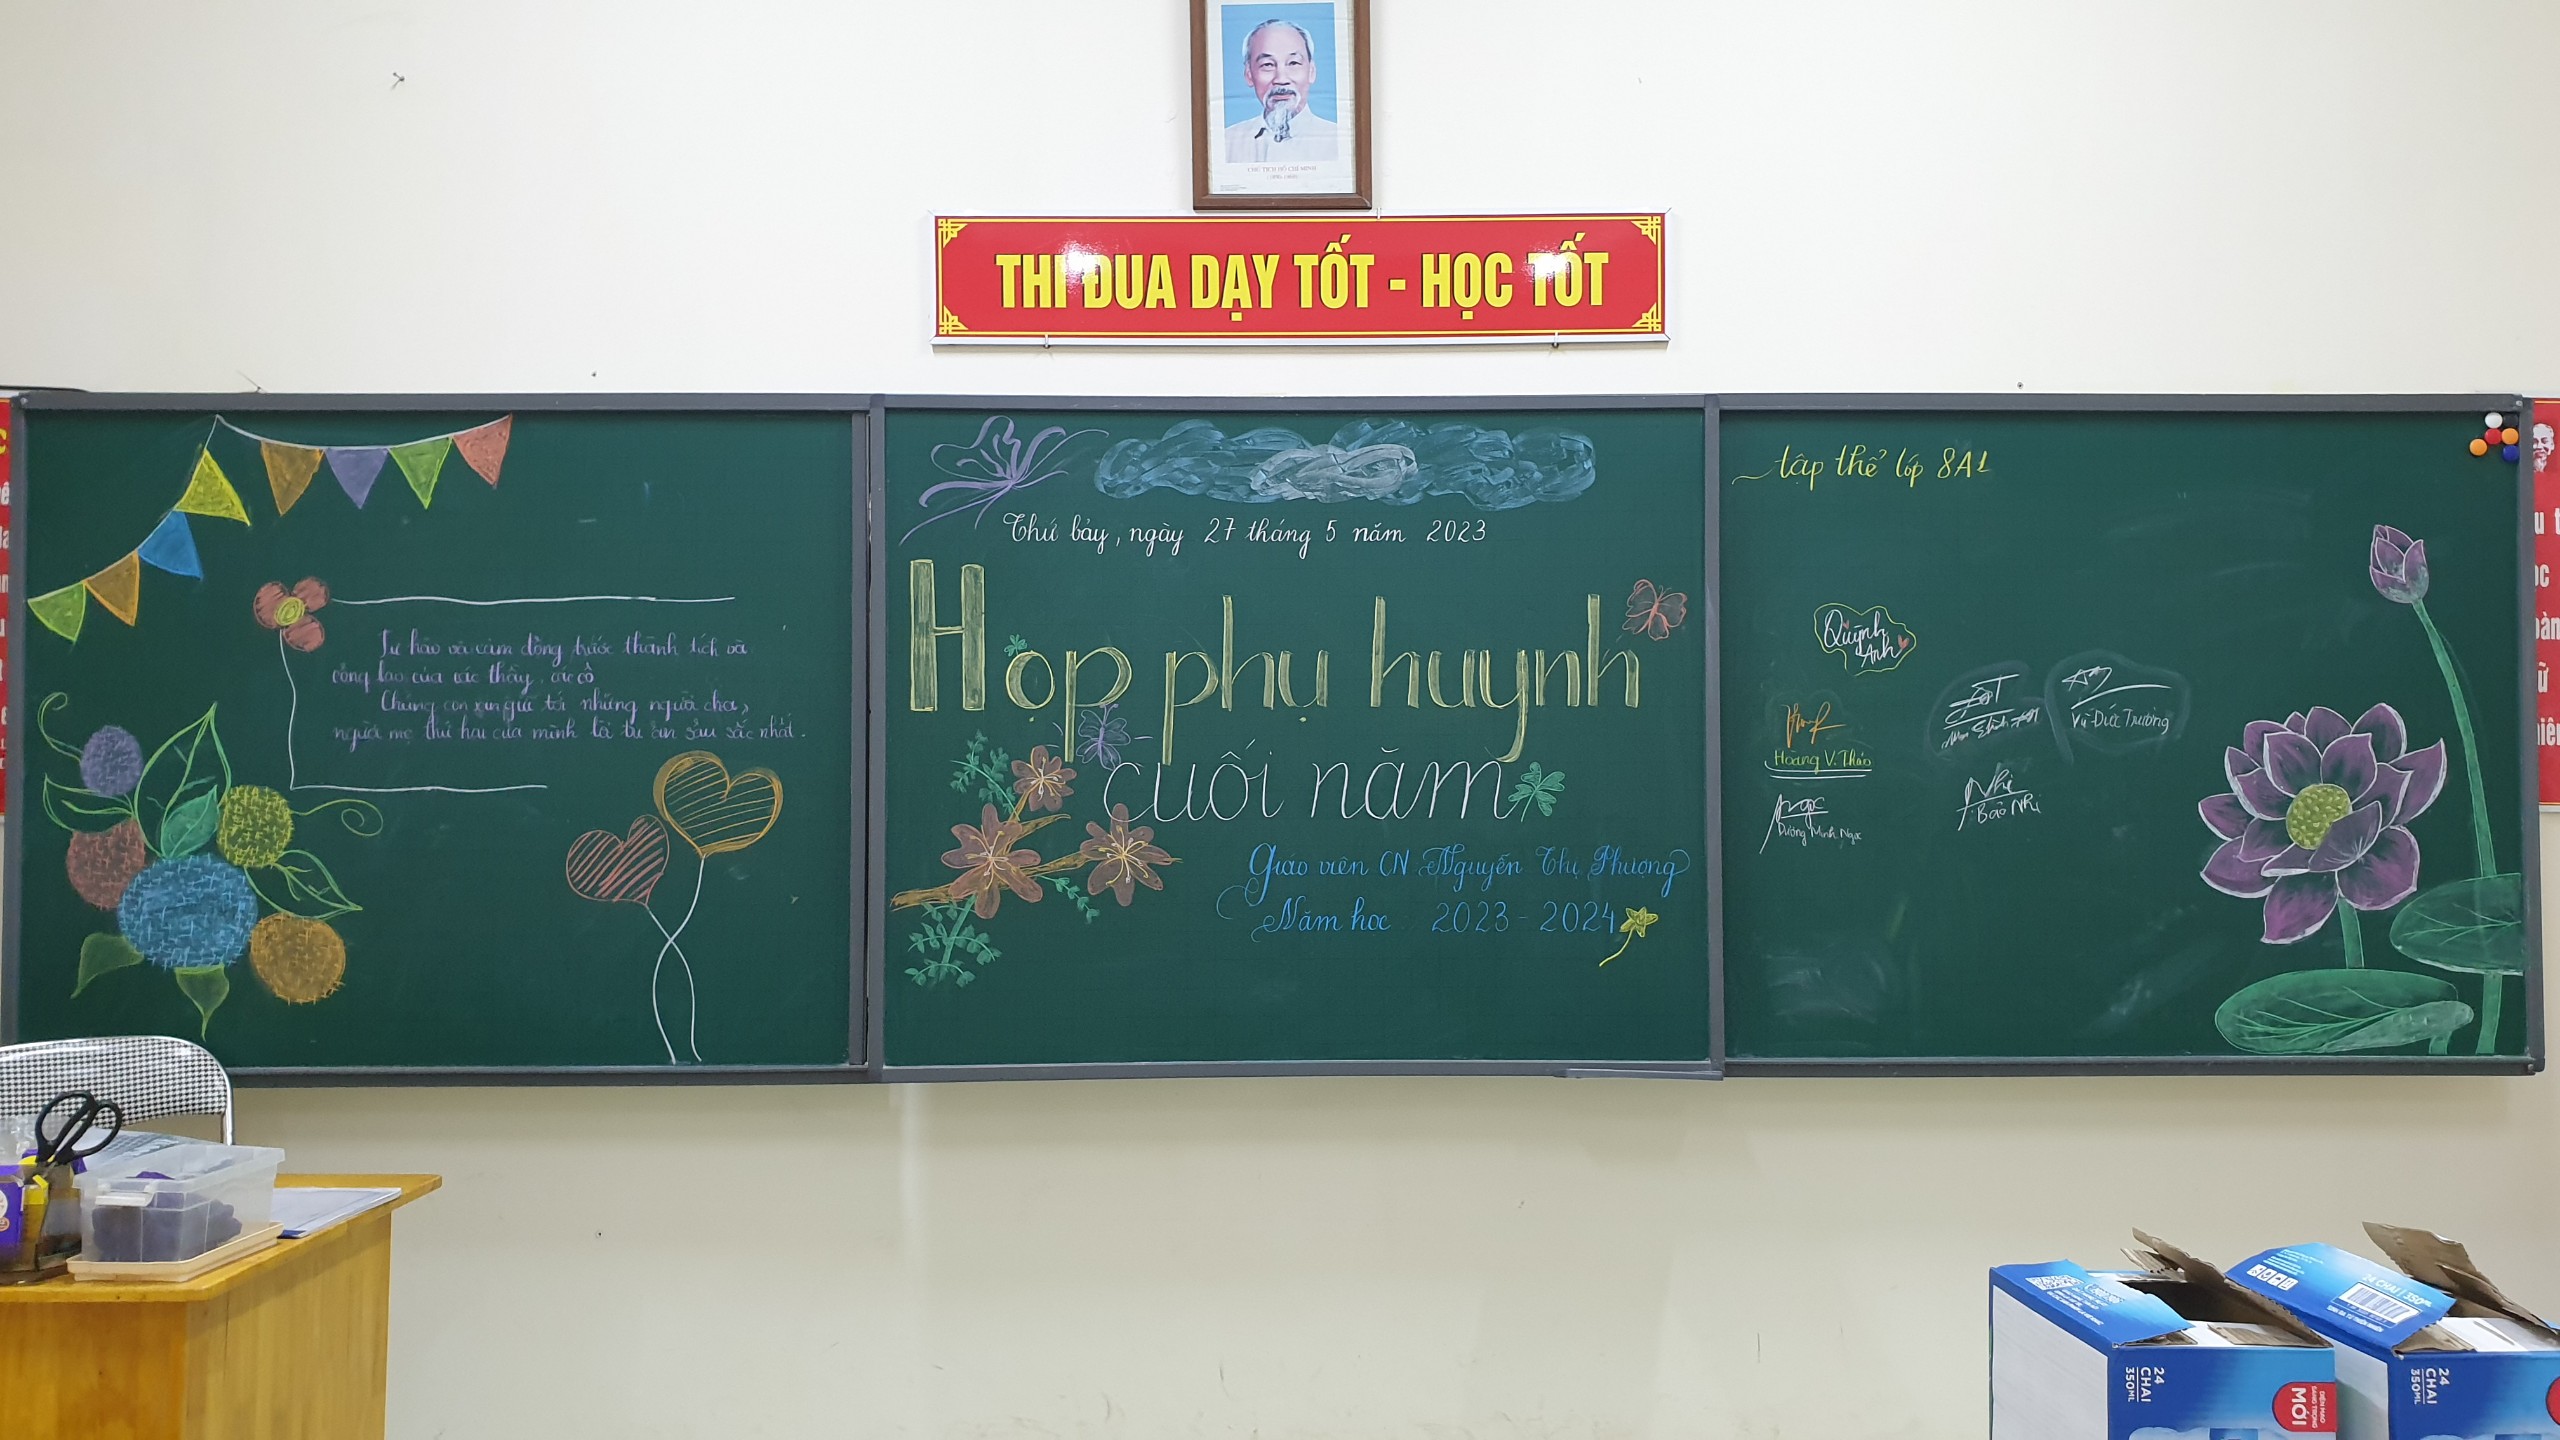 CHỦ TỊCH HỒ CHÍ MINH
(1890-1969)
THI ĐUA DẠY TỐT - HỌC TỐT
Tự hào và cảm động trước thành tích và
công lao của các thầy, các cô
Chúng con xin gửi tới những người cha,
người mẹ thứ hai của mình lời tri ân sâu sắc nhất.
Thứ bảy, ngày 27 tháng 5 năm 2023
Họp phụ huynh
cuối năm
Giáo viên CN Nguyễn Thị Phượng
Năm học 2023 - 2024
tập thể lớp 8A1
Quỳnh
Anh
Hoàng V. Thảo
Ngọc
Dương Minh Ngọc
Vũ Đức Trường
Nhi
Bảo Nhi
24 CHAI 350ML
24
CHAI
350ML
MỚI
24
CHAI
350ML